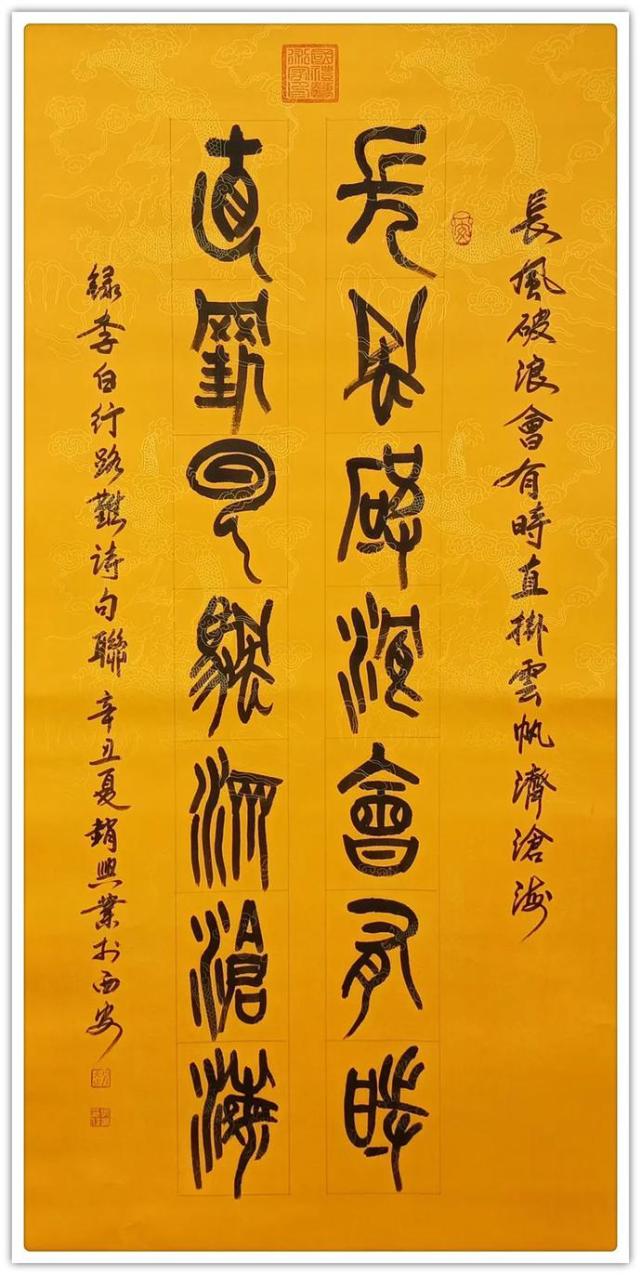 長風破浪會有時直掛雲帆濟滄海
長風破浪會有時
直掛雲帆濟滄海
錄李白行路難詩句聯 辛丑夏趙興業於西安